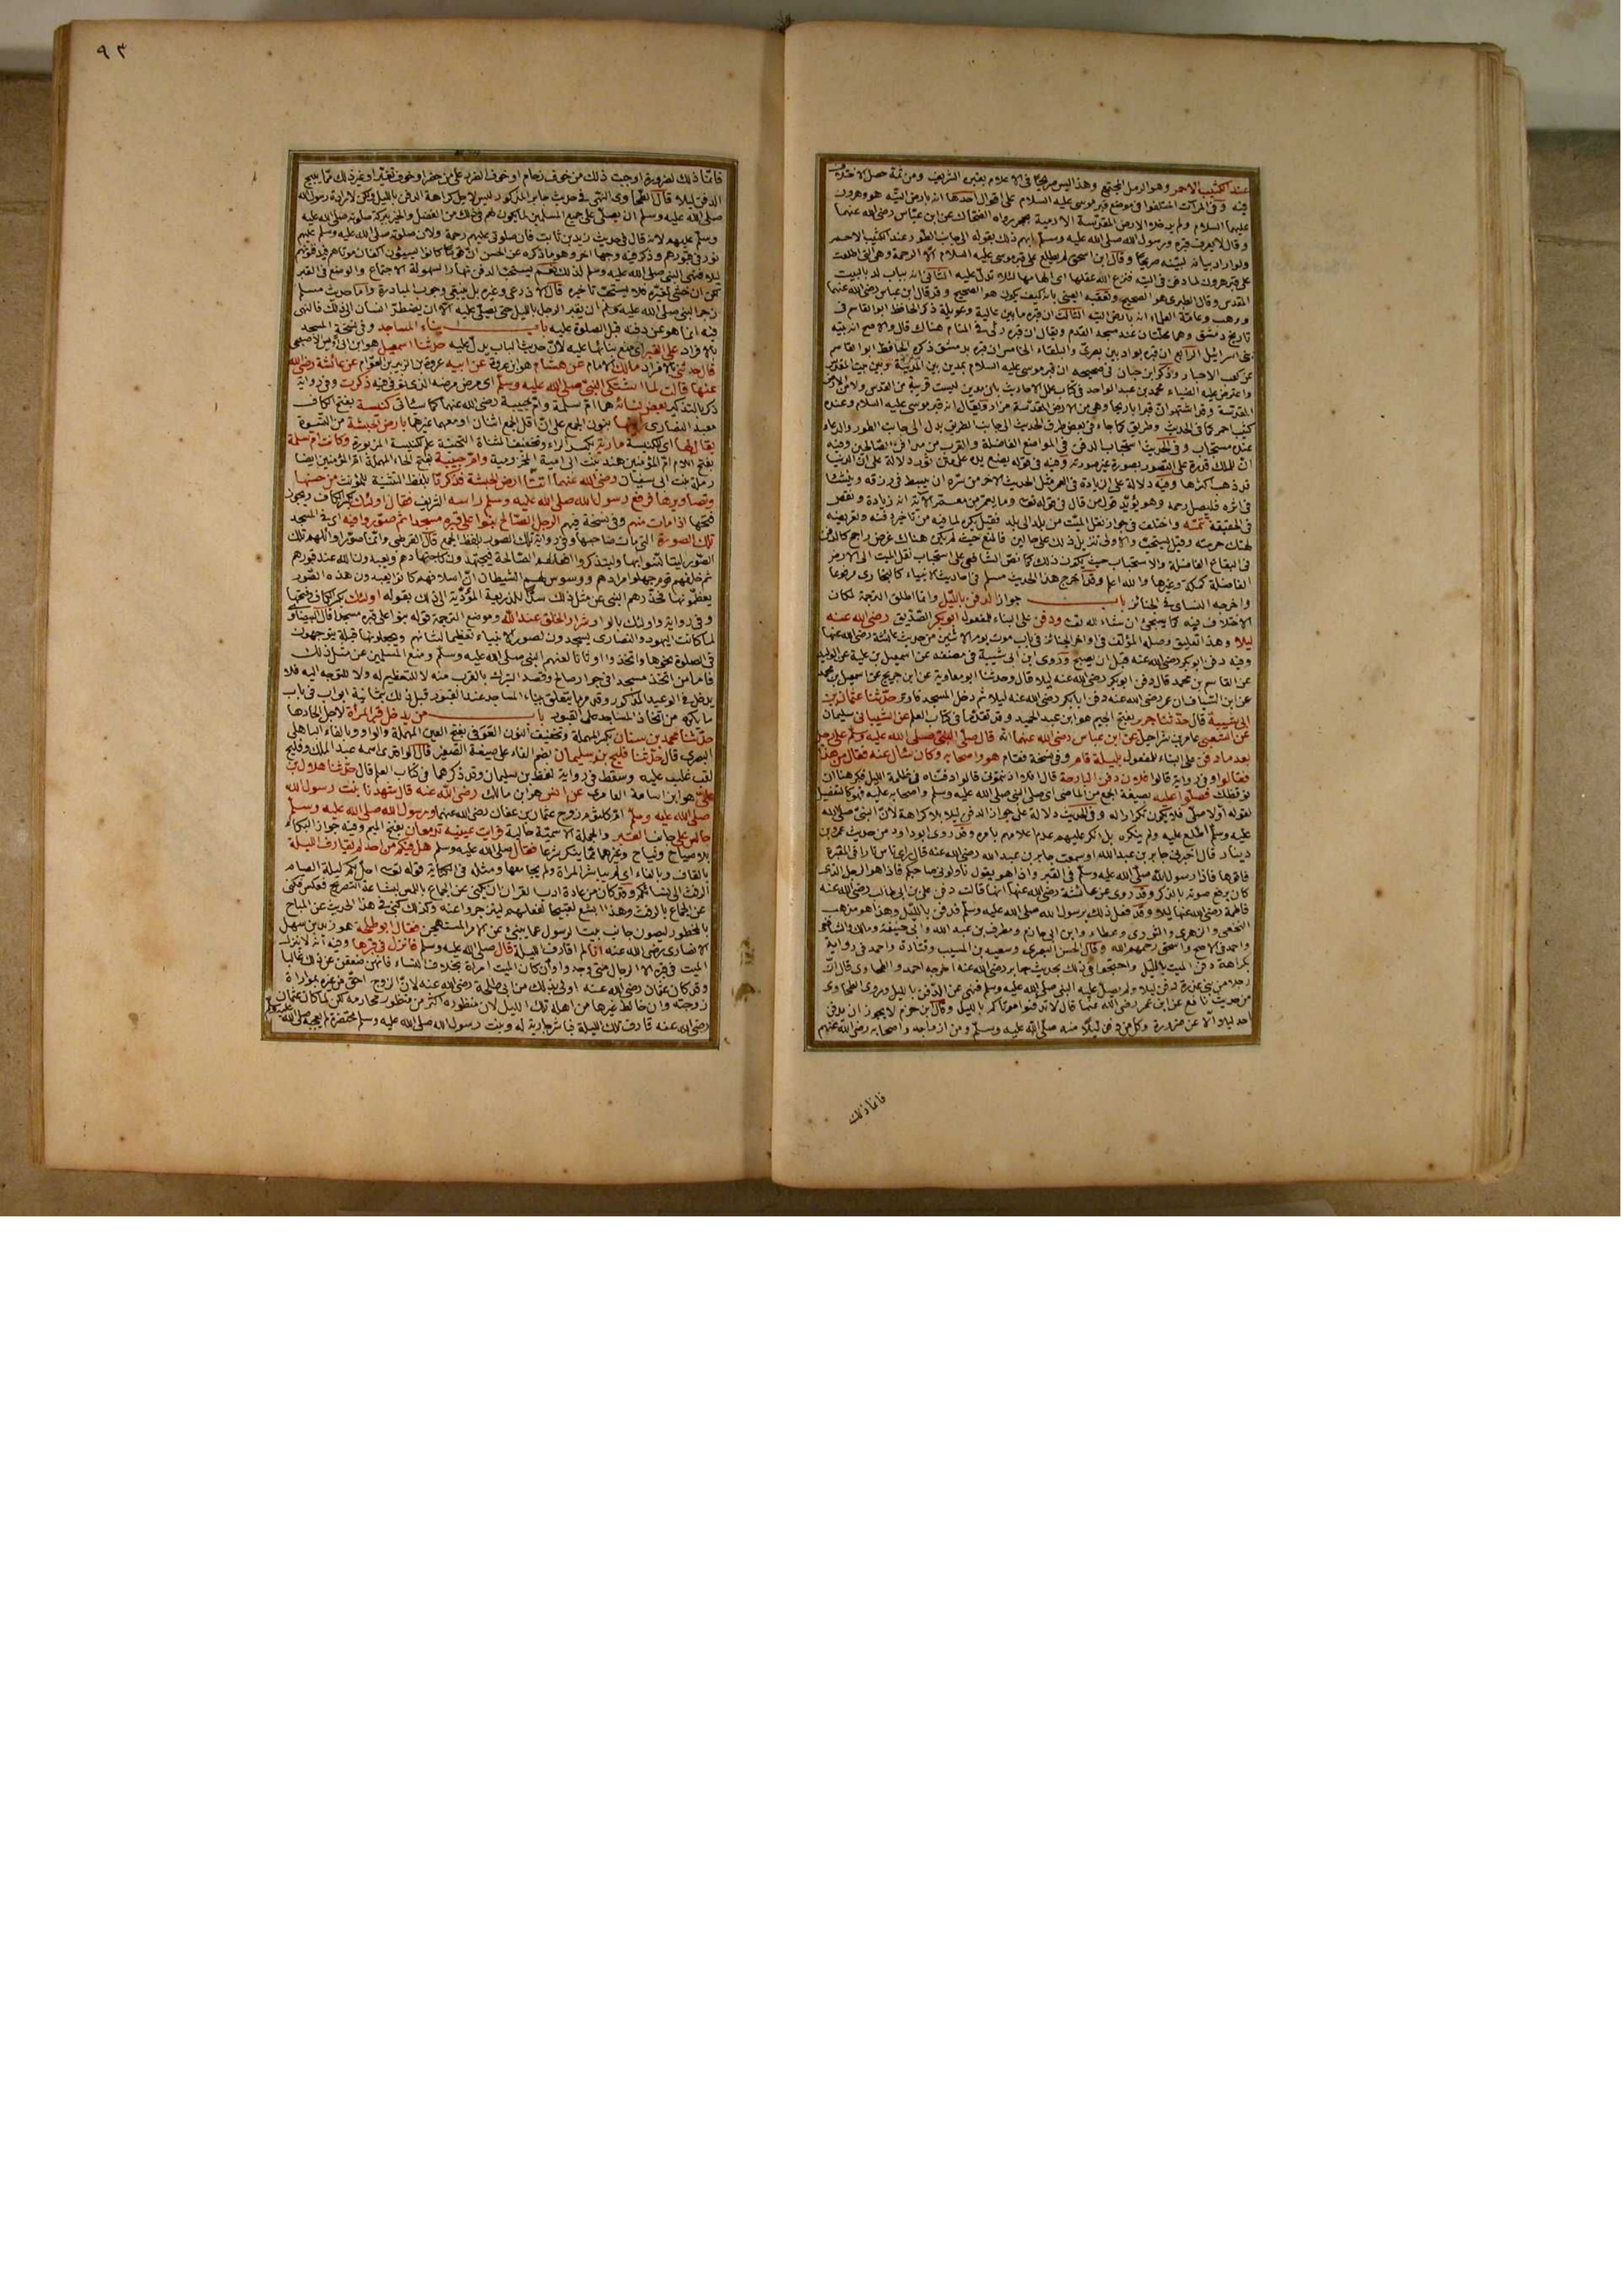 عند الكثيب الاحمر وهو الرمل المجتمع وهذا ليس صريحا في الاعلام بقبره الشريف ومن ثمة حصل الاختلاف
فيه وفى المرآت اختلفوا في موضع قبر موسى عليه السلام على اقوال احدها انه بارض التيه هو وهرون
عليهما السلام ولم يدخلا الارض المقدسة الا رمية بحجر رواه الضحاك عن ابن عباس رضى الله عنهما
وقال لا يعرف قبره ورسول الله صلى الله عليه وسلم ابهم ذلك بقوله الى جانب الطور عند الكثيب الاحمر
ولو اراد بيانه لبينه صريحا وقال ابن اسحق لم يطلع على قبر موسى عليه السلام الا الرحمة وهى التى اطلعت
على قبر هرون لما دفن فى التيه فنزع الله عقلها اى الهامها لئلا تدل عليه الثانى انه بباب لد بالبيت
المقدس وقال الطبرى هو الصحيح وتعقبه العينى بانه كيف يكون هو الصحيح وقد قال ابن عباس رضى الله عنهما
ووهب وعامة العلماء انه بارض التيه الثالث ان قبره ما بين عالية وعويلة ذكره الحافظ ابو القاسم فى
تاريخ دمشق وهما محلتان عند مسجد القدم ويقال ان قبره رئى فى المنام هناك قال والاصح انه بتيه
بنى اسرائيل الرابع ان قبره بواد بين بصرى والبلقاء الخامس ان قبره بدمشق ذكره الحافظ ابو القاسم
عن كعب الاحبار وذكر ابن حبان فى صحيحه ان قبر موسى عليه السلام بمدين بين المدينة وبين بيت المقدس
واعترض عليه الضياء محمد بن عبد الواحد فى كتاب علل الاحاديث بان مدين ليست قريبة من القدس ولا من الارض
المقدسة وقد اشتهر ان قبرا باريحا وهى من الارض المقدسة مزار ويقال انه قبر موسى عليه السلام وعنده
كثيب احمر كما فى الحديث وطريق كما جاء فى بعض طرق الحديث الى جانب الطريق بدل الى جانب الطور والدعاء
عنده مستجاب وفى الحديث استحباب الدفن فى المواضع الفاضلة والقرب من مدافن الصالحين وفيه
ان للملك قدرة على التصور بصورة غير صورته وفيه فى قوله يضع يده على متن ثور دلالة على ان الدنيا
قد ذهب اكثرها وفيه دلالة على الزيادة فى العمر مثل الحديث الآخر من سره ان يبسط فى رزقه وينسأ
فى اثره فليصل رحمه وهو يؤيد قول من قال فى قوله تعالى وما يعمر من معمر الآية انه زيادة ونقص
فى الحقيقة تتمته واختلف فى جواز نقل الميت من بلد الى بلد فقيل يكره لما فيه من تاخير دفنه وتعريضه
لهتك حرمته وقيل يستحب والاولى تنزيل ذلك على حالين فالمنع حيث لم يكن هناك غرض راجح كالدفن
فى البقاع الفاضلة والاستحباب حيث يكون ذلك كما نص الشافعى على استحباب نقل الميت الى الارض
الفاضلة كمكة وغيرها والله اعلم وقد اخرج هذا الحديث مسلم فى احاديث الانبياء كالبخارى مرفوعا
واخرجه النسائى فى الجنائز باب جواز الدفن بالليل وانما اطلق الترجمة لمكان
الاختلاف فيه كما سيجئ ان شاء الله تعالى ودفن على البناء للمفعول ابو بكر الصديق رضى الله عنه
ليلا وهذا التعليق وصله المؤلف فى اواخر الجنائز فى باب موت يوم الاثنين من حديث عائشة رضى الله عنها
وفيه دفن ابو بكر رضى الله عنه قبل ان يصبح وروى ابن ابى شيبة فى مصنفه عن اسمعيل بن علية عن الوليد
عن القاسم بن محمد قال دفن ابو بكر رضى الله عنه ليلا قال وحدثنا ابو معاوية عن ابن جريج عن اسمعيل بن محمد
عن ابن السباق ان عمر رضى الله عنه دفن ابا بكر رضى الله عنه ليلا ثم دخل المسجد فاوتر حدثنا عثمان بن
ابى شيبة قال حدثنا جرير بفتح الجيم هو ابن عبد الحميد وقد تقدما فى كتاب العلم عن الشيبانى سليمان
عن الشعبى عامر بن شراحيل عن ابن عباس رضى الله عنهما انه قال صلى النبى صلى الله عليه وسلم على رجل
بعد ما دفن على البناء للمفعول بليلة قام وفى نسخة فقام هو واصحابه وكان سأل عنه فقال من هذا
فقالوا وفى رواية قالوا فلان دفن البارحة قال افلا اذنتمونى قالوا دفناه فى ظلمة الليل فكرهنا ان
نوقظك فصلوا عليه بصيغة الجمع من الماضى اى صلى النبى صلى الله عليه وسلم واصحابه عليه فهو كالتفصيل
لقوله اولا صلى فلا يكون تكرارا له وفى الحديث دلالة على جواز الدفن ليلا بلا كراهة لان النبى صلى الله
عليه وسلم اطلع عليه ولم ينكره بل انكر عليهم عدم اعلامهم بامره وقد روى ابو داود من حديث عمرو بن
دينار قال اخبرنى جابر بن عبد الله او سمعت جابر بن عبد الله رضى الله عنه قال راى ناس نارا فى المقبرة
فاتوها فاذا رسول الله صلى الله عليه وسلم فى القبر واذا هو يقول ناولونى صاحبكم فاذا هو الرجل الذى
كان يرفع صوته بالذكر وقد روى عن عائشة رضى الله عنها انها قالت دفن على بن ابى طالب رضى الله عنه
فاطمة رضى الله عنها ليلا وقد فعل ذلك برسول الله صلى الله عليه وسلم فدفن بالليل وهذا هو مذهب
النخعى والزهرى والثورى وعطاء وابن ابى حازم ومطرف بن عبد الله وابى حنيفة ومالك والشافعى
واحمد فى الاصح واسحق رحمهم الله وقال الحسن البصرى وسعيد بن المسيب وقتادة واحمد فى رواية
بكراهة دفن الميت بالليل واحتجوا فى ذلك بحديث جابر رضى الله عنه اخرجه احمد والطحاوى قال ان
رجلا من بنى عذرة دفن ليلا ولم يصل عليه النبى صلى الله عليه وسلم فنهى عن الدفن بالليل وروى الطحاوى
من حديث نافع عن ابن عمر رضى الله عنهما قال لا تدفنوا موتاكم بالليل وقال ابن حزم لا يجوز ان يدفن
احد ليلا الا عن ضرورة وكل من دفن ليلا منه صلى الله عليه وسلم ومن ازواجه واصحابه رضى الله عنهم
فانما ذلك
٩٣
فانما ذلك لضرورة اوجبت ذلك من خوف زحام او خوف الضر على من حضر او خوف تغير او غير ذلك مما يبيح
الدفن ليلا قال الطحاوى النهى فى حديث جابر المذكور ليس لاجل كراهة الدفن بالليل ولكن لارادة رسول الله
صلى الله عليه وسلم ان يصلى على جميع المسلمين لما يكون لهم فى ذلك من الفضل والخير ببركة صلوته صلى الله عليه
وسلم عليهم لانه قال فى حديث زيد بن ثابت فان صلوتى عليهم رحمة ولان صلوته صلى الله عليه وسلم عليهم
نور فى قبورهم وذكر فيه وجها آخر وهو ما ذكره عن الحسن ان قوما كانوا يسيئون اكفان موتاهم فيدفنونهم
ليلا فنهى النبى صلى الله عليه وسلم لذلك نعم يستحب الدفن نهارا لسهولة الاجتماع والوضع فى القبر
لكن ان خشى تغيره فلا يستحب تاخيره قال الاذرعى وغيره بل ينبغى وجوب المبادرة واما حديث مسلم
زجر النبى صلى الله عليه وسلم ان يقبر الرجل بالليل حتى يصلى عليه الا ان يضطر انسان الى ذلك فالنهى
فيه انما هو عن دفنه قبل الصلوة عليه باب بناء المساجد وفى نسخة المسجد
بالافراد على القبر اى منع بنائها عليه لان حديث الباب يدل عليه حدثنا اسمعيل هو ابن ابى اويس الاصبحى
قال حدثنى بالافراد مالك الامام عن هشام هو ابن عروة عن ابيه عروة بن الزبير بن العوام عن عائشة رضى الله
عنها قالت لما اشتكى النبى صلى الله عليه وسلم اى مرض مرضه الذى توفى فيه ذكرت وفى رواية
ذكر بالتذكير بعض نسائه هما ام سلمة وام حبيبة رضى الله عنهما كما سياتى كنيسة بفتح الكاف
معبد النصارى رأينها بنون الجمع على ان اقل الجمع اثنان او معهما غيرهما بارض الحبشة من النسوة
يقال لها اى للكنيسة مارية بكسر الراء وتخفيف المثناة التحتية علم للكنيسة المزبورة وكانت ام سلمة
بفتح اللام ام المؤمنين هند بنت ابى امية المخزومية وام حبيبة بفتح الحاء المهملة ام المؤمنين ايضا
رملة بنت ابى سفيان رضى الله عنهما اتتا ارض الحبشة فذكرتا بلفظ التثنية للمؤنث من حسنها
وتصاويرها فرفع رسول الله صلى الله عليه وسلم راسه الشريف فقال اولئك بكسر الكاف ويجوز
فتحها اذا مات منهم وفى نسخة فيهم الرجل الصالح بنوا على قبره مسجدا ثم صوروا فيه اى فى المسجد
تلك الصورة التى مات صاحبها وفى رواية تلك الصور بلفظ الجمع قال القرطبى وانما صور اوائلهم تلك
الصور ليتأنسوا بها وليتذكروا افعالهم الصالحة فيجتهدون كاجتهادهم ويعبدون الله عند قبورهم
ثم خلفهم قوم جهلوا مرادهم ووسوس لهم الشيطان ان اسلافهم كانوا يعبدون هذه الصور
يعظمونها فحذرهم النبى عن مثل ذلك سدا للذريعة المؤدية الى ذلك بقوله اولئك بكسر الكاف وفتحها
وفى رواية واولئك بالواو شرار الخلق عند الله وموضع الترجمة قوله بنوا على قبره مسجدا قال البيضاوى
لما كانت اليهود والنصارى يسجدون لصور الانبياء تعظيما لشانهم ويجعلونها قبلة يتوجهون
فى الصلوة نحوها واتخذوا اوثانا لعنهم النبى صلى الله عليه وسلم ومنع المسلمين عن مثل ذلك
فاما من اتخذ مسجدا فى جوار صالح وقصد التبرك بالقرب منه لا للتعظيم له ولا للتوجه اليه فلا
يدخل فى الوعيد المذكور وقد مر ما يتعلق ببناء المساجد عند القبور قبل ذلك بثمانية ابواب فى باب
ما يكره من اتخاذ المساجد على القبور باب من يدخل قبر المرأة لاجل الحادها
حدثنا محمد بن سنان بكسر المهملة وتخفيف النون العوقى بفتح العين المهملة والواو وبالقاف الباهلى
البصرى قال حدثنا فليح بن سليمان بضم الفاء على صيغة التصغير قال الواقدى اسمه عبد الملك وفليح
لقب غلب عليه وسقط فى رواية لفظ بن سليمان وقد ذكرهما فى كتاب العلم قال حدثنا هلال بن
على هو ابن اسامة العامرى عن انس هو ابن مالك رضى الله عنه قال شهدنا بنت رسول الله
صلى الله عليه وسلم ام كلثوم زوج عثمان بن عفان رضى الله عنهما ورسول الله صلى الله عليه وسلم
جالس على جانب القبر والجملة الاسمية حالية فرأيت عينيه تدمعان بفتح الميم وفيه جواز البكاء
بلا صياح ونياح وغيرهما مما ينكر شرعا فقال صلى الله عليه وسلم هل فيكم من احد لم يقارف الليلة
بالقاف وبالفاء اى لم يباشر المرأة ولم يجامعها ومثله فى الكناية قوله تعالى احل لكم ليلة الصيام
الرفث الى نسائكم وقد كان من عادة ادب القران ان يكنى عن الجماع باللمس لبشاعة التصريح فعكس فكنى
عن الجماع بالرفث وهذا ابشع تقبيحا لفعلهم لينزجروا عنه وكذلك كنى فى هذا الحديث عن المباح
بالمحظور ليصون جانب بنت الرسول عما ينبئ عن الامر المستهجن فقال ابو طلحة هو زيد بن سهل
الانصارى رضى الله عنه انا لم اقارف الليلة قال صلى الله عليه وسلم فانزل فى قبرها وفيه انه لا ينزل
الميت فى قبره الا الرجال متى وجدوا وان كان الميت امرأة بخلاف النساء فانهن ضعفن عن ذلك غالبا
وقد كان عثمان رضى الله عنه اولى بذلك من ابى طلحة رضى الله عنه لان الزوج احق من غيره بمواراة
زوجته وان خالط غيرها من اهله تلك الليلة لان منظوره اكثر من منظور محارمه لكن لما كان عثمان
رضى الله عنه قارف تلك الليلة فباشر جارية له وبنت رسول الله صلى الله عليه وسلم محتضرة لم يعجبه صلى الله عليه وسلم